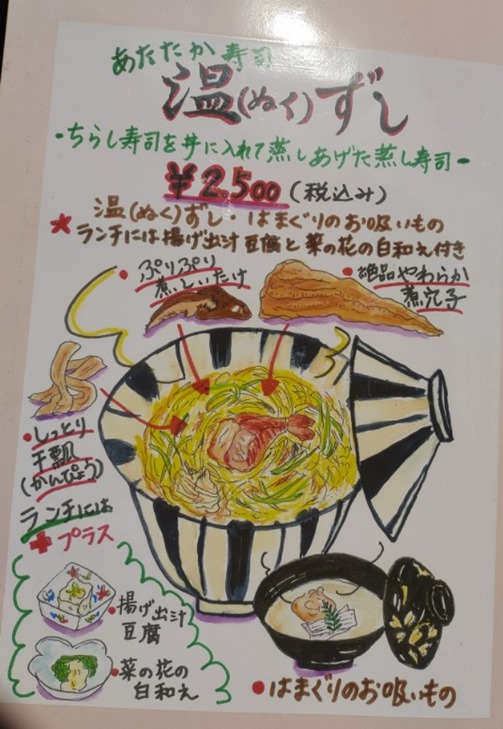 あたたか寿司
温(ぬく)ずし
-ちらし寿司を丼に入れて蒸しあげた蒸し寿司-
¥2,500(税込み)
温(ぬく)ずし はまぐりのお吸いもの
★ランチには揚げ出汁豆腐と菜の花の白和え付き
・ぷりぷり
煮しいたけ
・絶品やわらか
煮穴子
・しっとり
干瓢
(かんぴょう)
ランチには
+プラス
・揚げ出汁
豆腐
・菜の花の
白和え
・はまぐりのお吸いもの